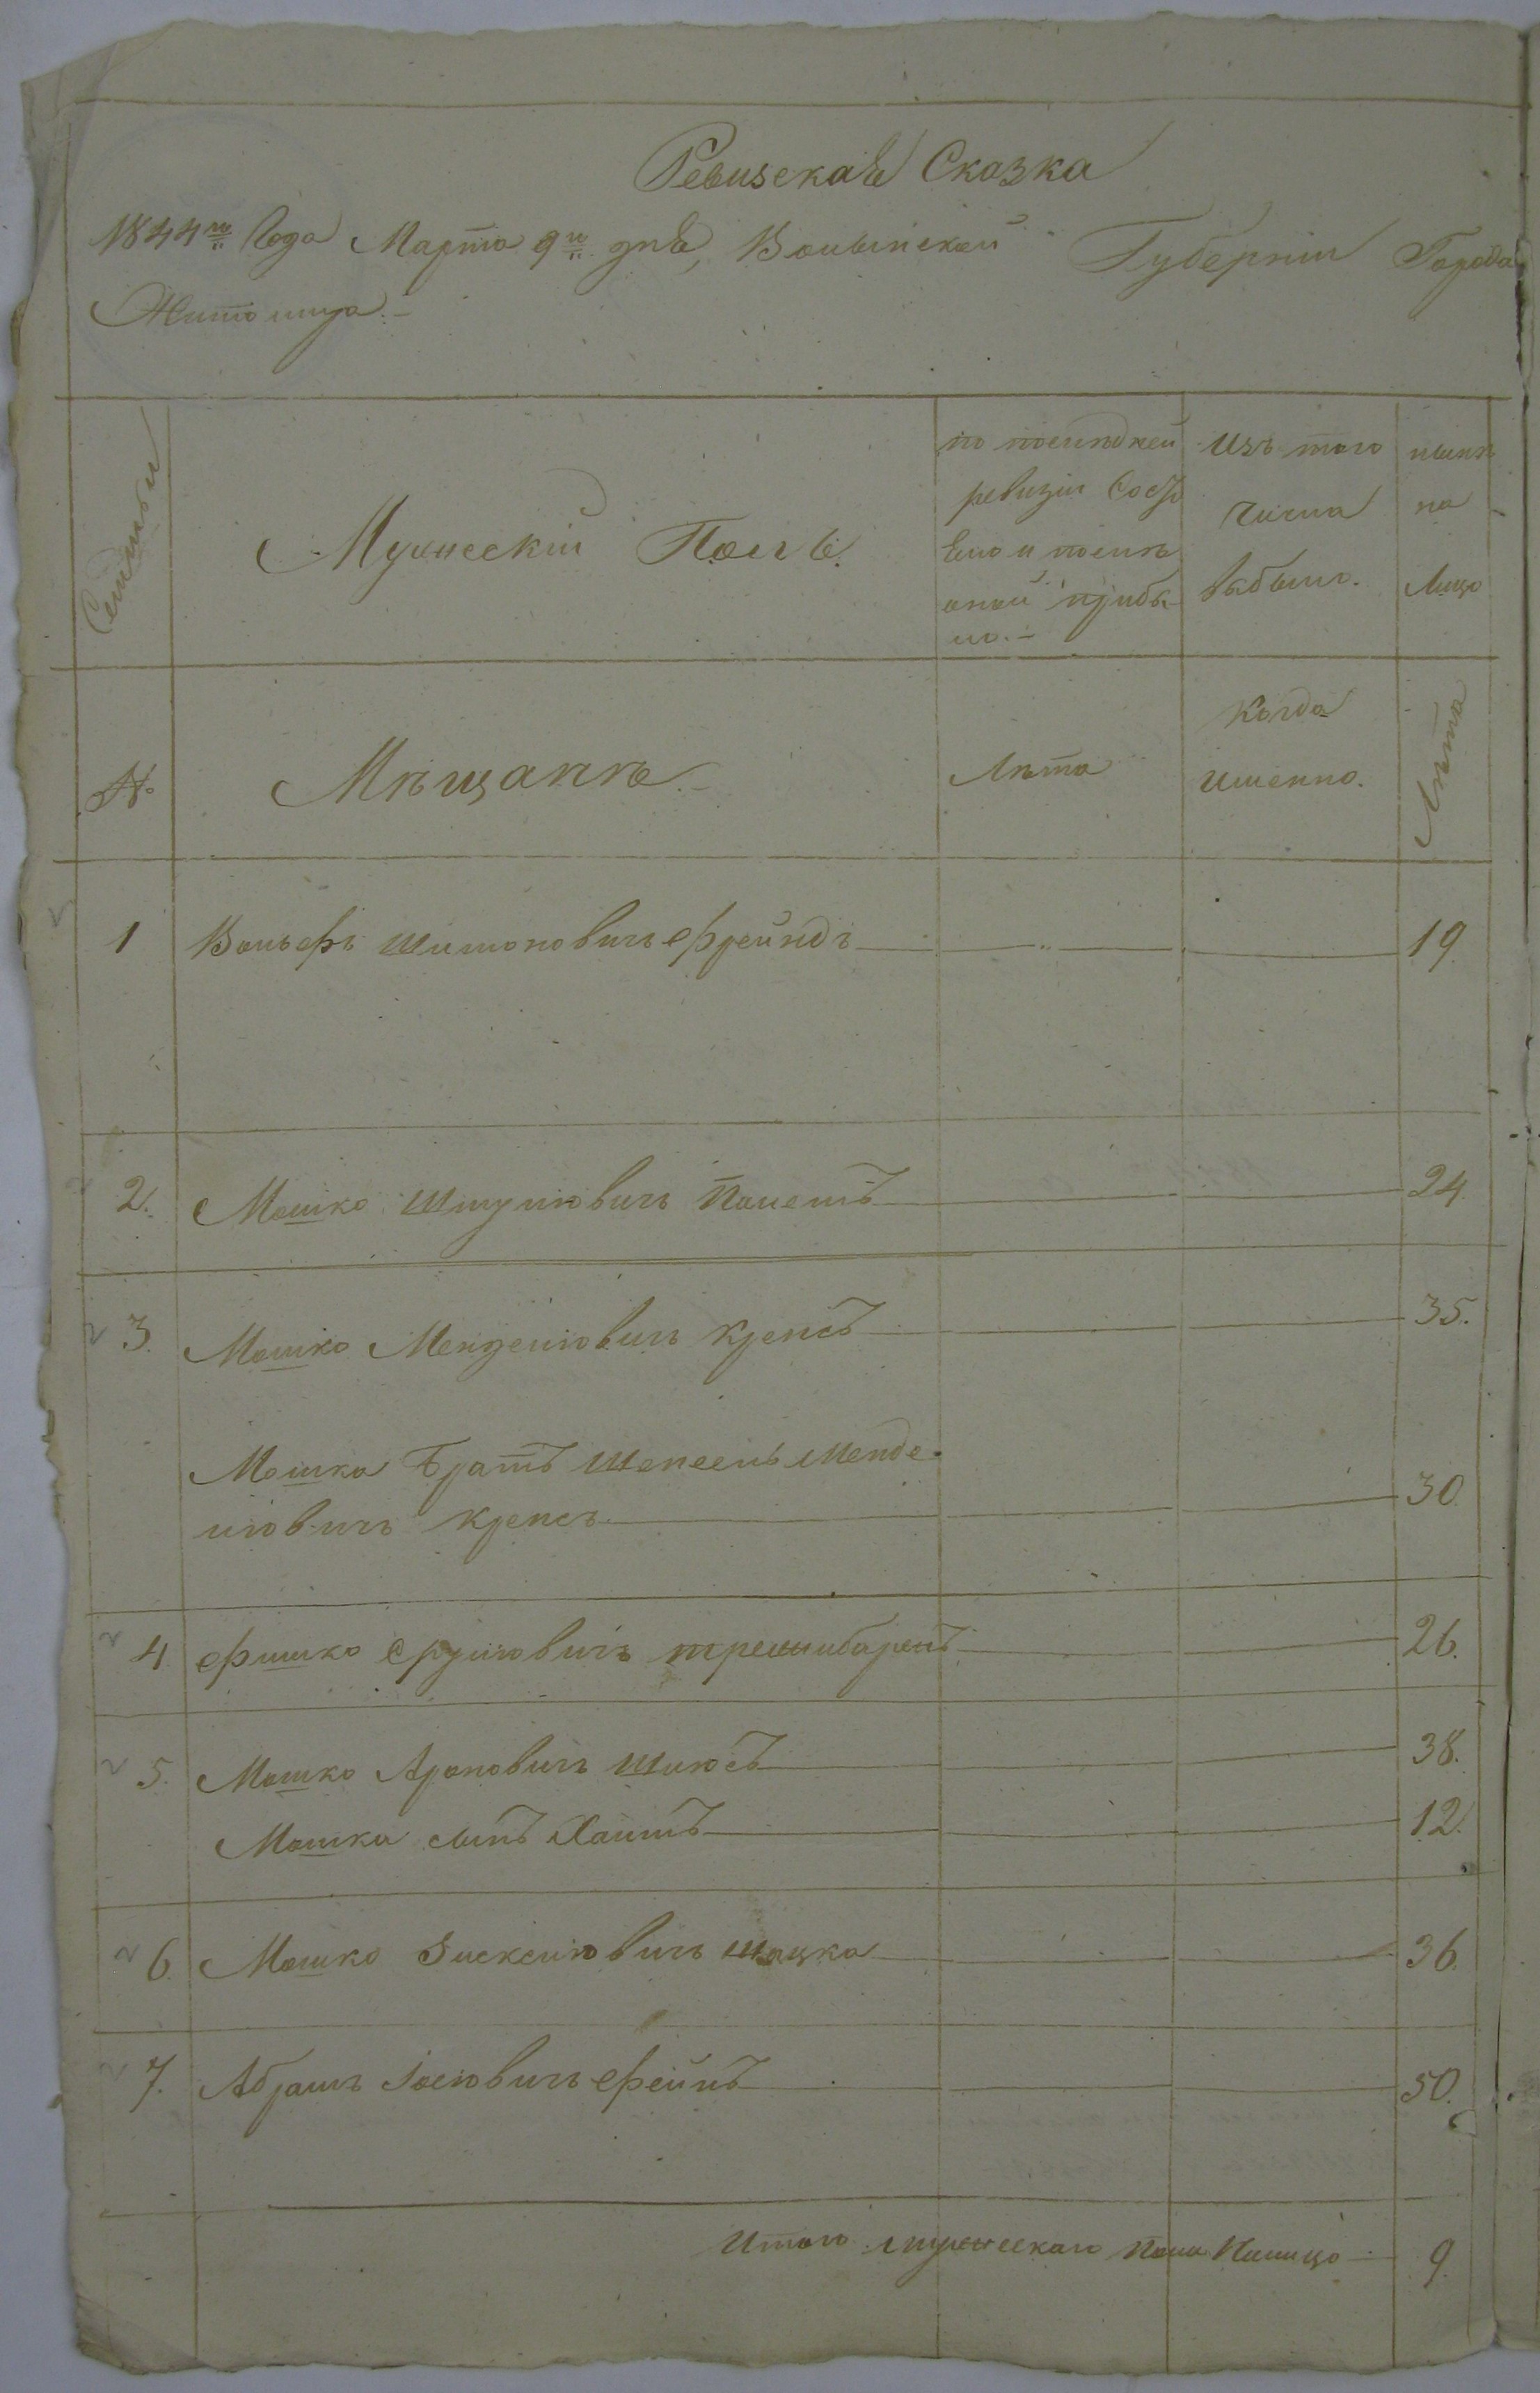 Ревизская Сказка
1844го Года Марта 9го дня, Волынской Губернiи Города
Житомира.-
Семьи
Мужескiй Полъ.
по последней
ревизiи состо
яло и после
оной прибы-
ло.-
Изъ того
числа
выбыло.
ныне
на
лицо
№
Мѣщанъ.-
Лѣта
Когда
именно.
Лѣта
1 Вольфъ Шимоновичъ Фрейндъ 19.
2. Мошко Шмулiовичъ 24.
3. Мошко Менделiовичъ Крепсъ 35.
Мошка братъ Шепсель Менде-
лiовичъ Крепсъ 30.
4 Фишко Срулiовичъ 26.
5. Мошко Ароновичъ 38.
Мошка сынъ Хаимъ 12.
6. Мошко Зискелiовичъ Шацка 36.
7. Абрамъ Iосiовичъ Фейнъ 50.
Итого мужескаго пола налицо 9.